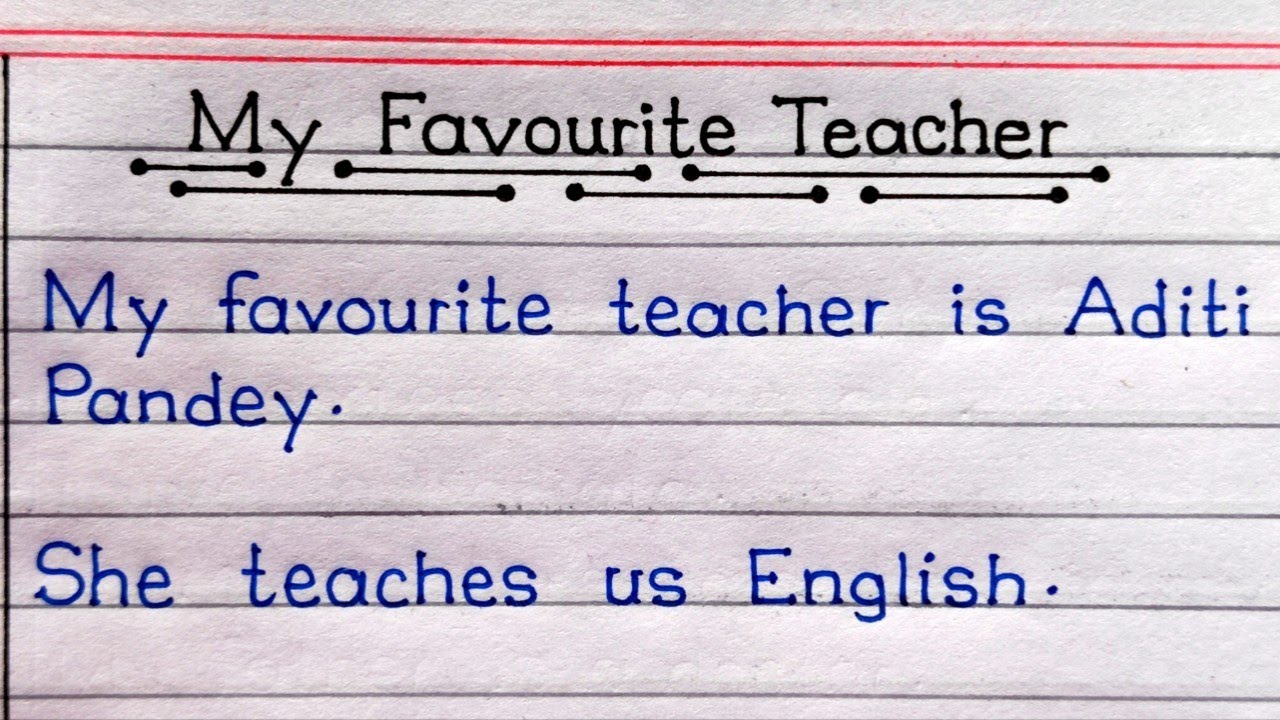 My Favourite Teacher
My favourite teacher is Aditi
Pandey.
She teaches us English.